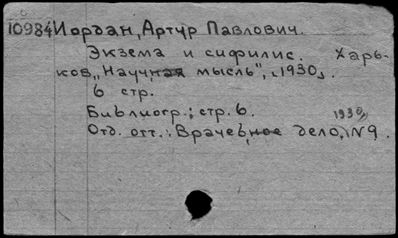 10984 Иордан, Артур Павлович.
Экзема и сифилис. Харь-
ков, „Научная мысль", [1930].
6 стр.
Библиогр.: стр. 6.
Отд. отт.: Врачебное дело, 1930, N9.